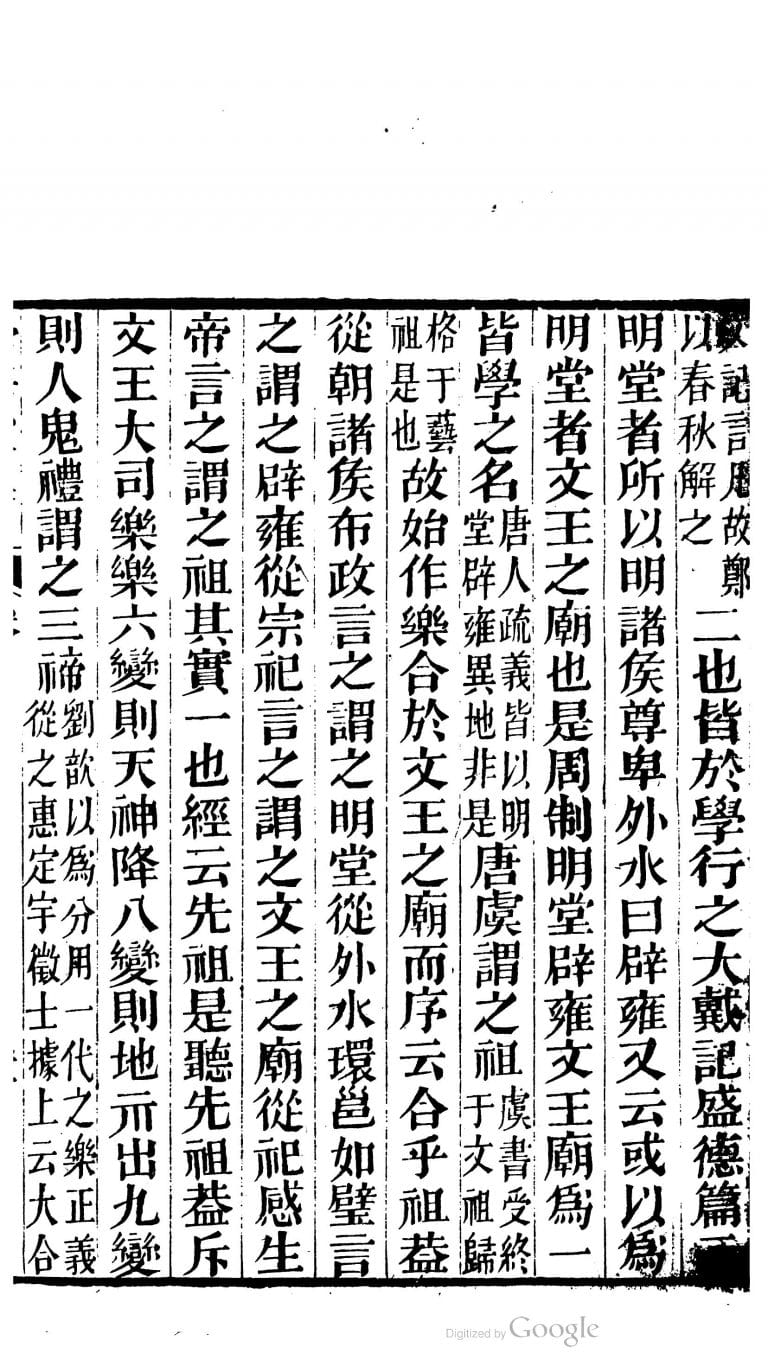 以春秋解之 二也皆於學行之大戴記盛德篇
明堂者所以明諸矦尊卑外水曰辟雍又云或以爲
明堂者文王之廟也是周制明堂辟雍文王廟爲一
皆學之名唐人疏義皆以明堂辟雍異地非是唐虞謂之祖虞書受終于文祖歸
格于藝祖是也故始作樂合於文王之廟而序云合乎祖葢
從朝諸矦布政言之謂之明堂從外水環邕如璧言
之謂之辟雍從宗祀言之謂之文王之廟從祀感生
帝言之謂之祖其實一也經云先祖是聽先祖葢斥
文王大司樂樂六變則天神降八變則地示出九變
則人鬼禮謂之三禘劉歆以爲分用一代之樂正義從之惠定宇徵士據上云大合
Digitized by Google